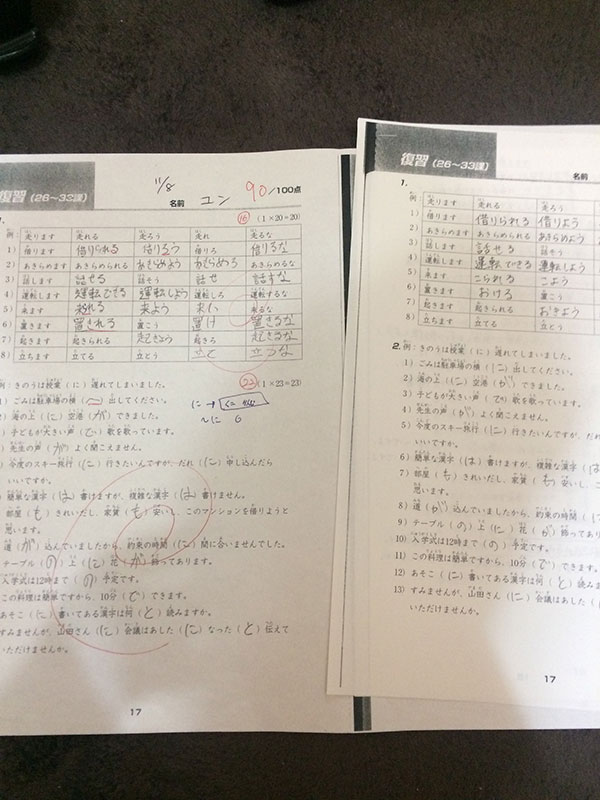 復習 (26～33課)
11/8
名前 ユン 90/100点
1.
⑯ (1×20=20)
例: 走ります 走れる 走ろう 走れ 走るな
1) 借ります 借りられる 借りろう 借りろ 借りるな
2) あきらめます あきらめられる あきらめよう あきらめろ あきらめるな
3) 話します 話せる 話そう 話せ 話すな
4) 運転します 運転できる 運転しよう 運転しろ 運転するな
5) 来ます 来れる 来よう 来い 来るな
6) 置きます 置される 置こう 置け 置きるな
7) 起きます 起きられる 起きよう 起きるな
8) 立ちます 立てる 立とう 立て 立つな
㉒ (1×23=23)
例: きのうは授業 (に) 遅れてしまいました。
1) ごみは駐車場の横 ( ) 出してください。
2) 海の上 (に) 空港 (が) できました。
3) 子どもが大きい声 (で) 歌を歌っています。
4) 先生の声 (が) よく聞こえません。
5) 今度のスキー旅行 (に) 行きたいんですが、だれ (に) 申し込んだら
いいですか。
6) 簡単な漢字 (は) 書けますが、複雑な漢字 (は) 書けません。
部屋 (も) きれいだし、家賃 (も) 安いし、このマンションを借りようと
思います。
道 (が) 込んでいましたから、約束の時間 (に) 間に合いませんでした。
テーブル (の) 上 (に) 花 (が) 飾ってあります。
入学式は12時まで (の) 予定です。
この料理は簡単ですから、10分 (で) できます。
あそこ (に) 書いてある漢字は何 (と) 読みますか。
すみませんが、山田さん (に) 会議はあした (に) なった (と) 伝えて
いただけませんか。
17
復習 (26～33課)
名前
1.
例: 走ります 走れる 走ろう
1) 借ります 借りられる 借りよう
2) あきらめます あきらめられる あきらめよう
3) 話します 話せる 話そう
4) 運転します 運転できる 運転しよう
5) 来ます こられる こよう
6) 置きます おける 置こう
7) 起きます 起きられる おきよう
8) 立ちます 立てる 立とう
2. 例: きのうは授業 (に) 遅れてしまいました。
1) ごみは駐車場の横 (に) 出してください。
2) 海の上 (に) 空港 (が) できました。
3) 子どもが大きい声 (で) 歌を歌っています。
4) 先生の声 (が) よく聞こえません。
5) 今度のスキー旅行 (に) 行きたいんですが、だれ
いいですか。
6) 簡単な漢字 (は) 書けますが、複雑な漢字
7) 部屋 (も) きれいだし、家賃 (も) 安いし、こ
思います。
8) 道 (が) 込んでいましたから、約束の時間 (
9) テーブル (の) 上 (に) 花 (が) 飾ってあり
10) 入学式は12時まで (の) 予定です。
11) この料理は簡単ですから、10分 (で) できま
12) あそこ (に) 書いてある漢字は何 (と) 読み
13) すみませんが、山田さん (に) 会議はあした (
いただけませんか。
17